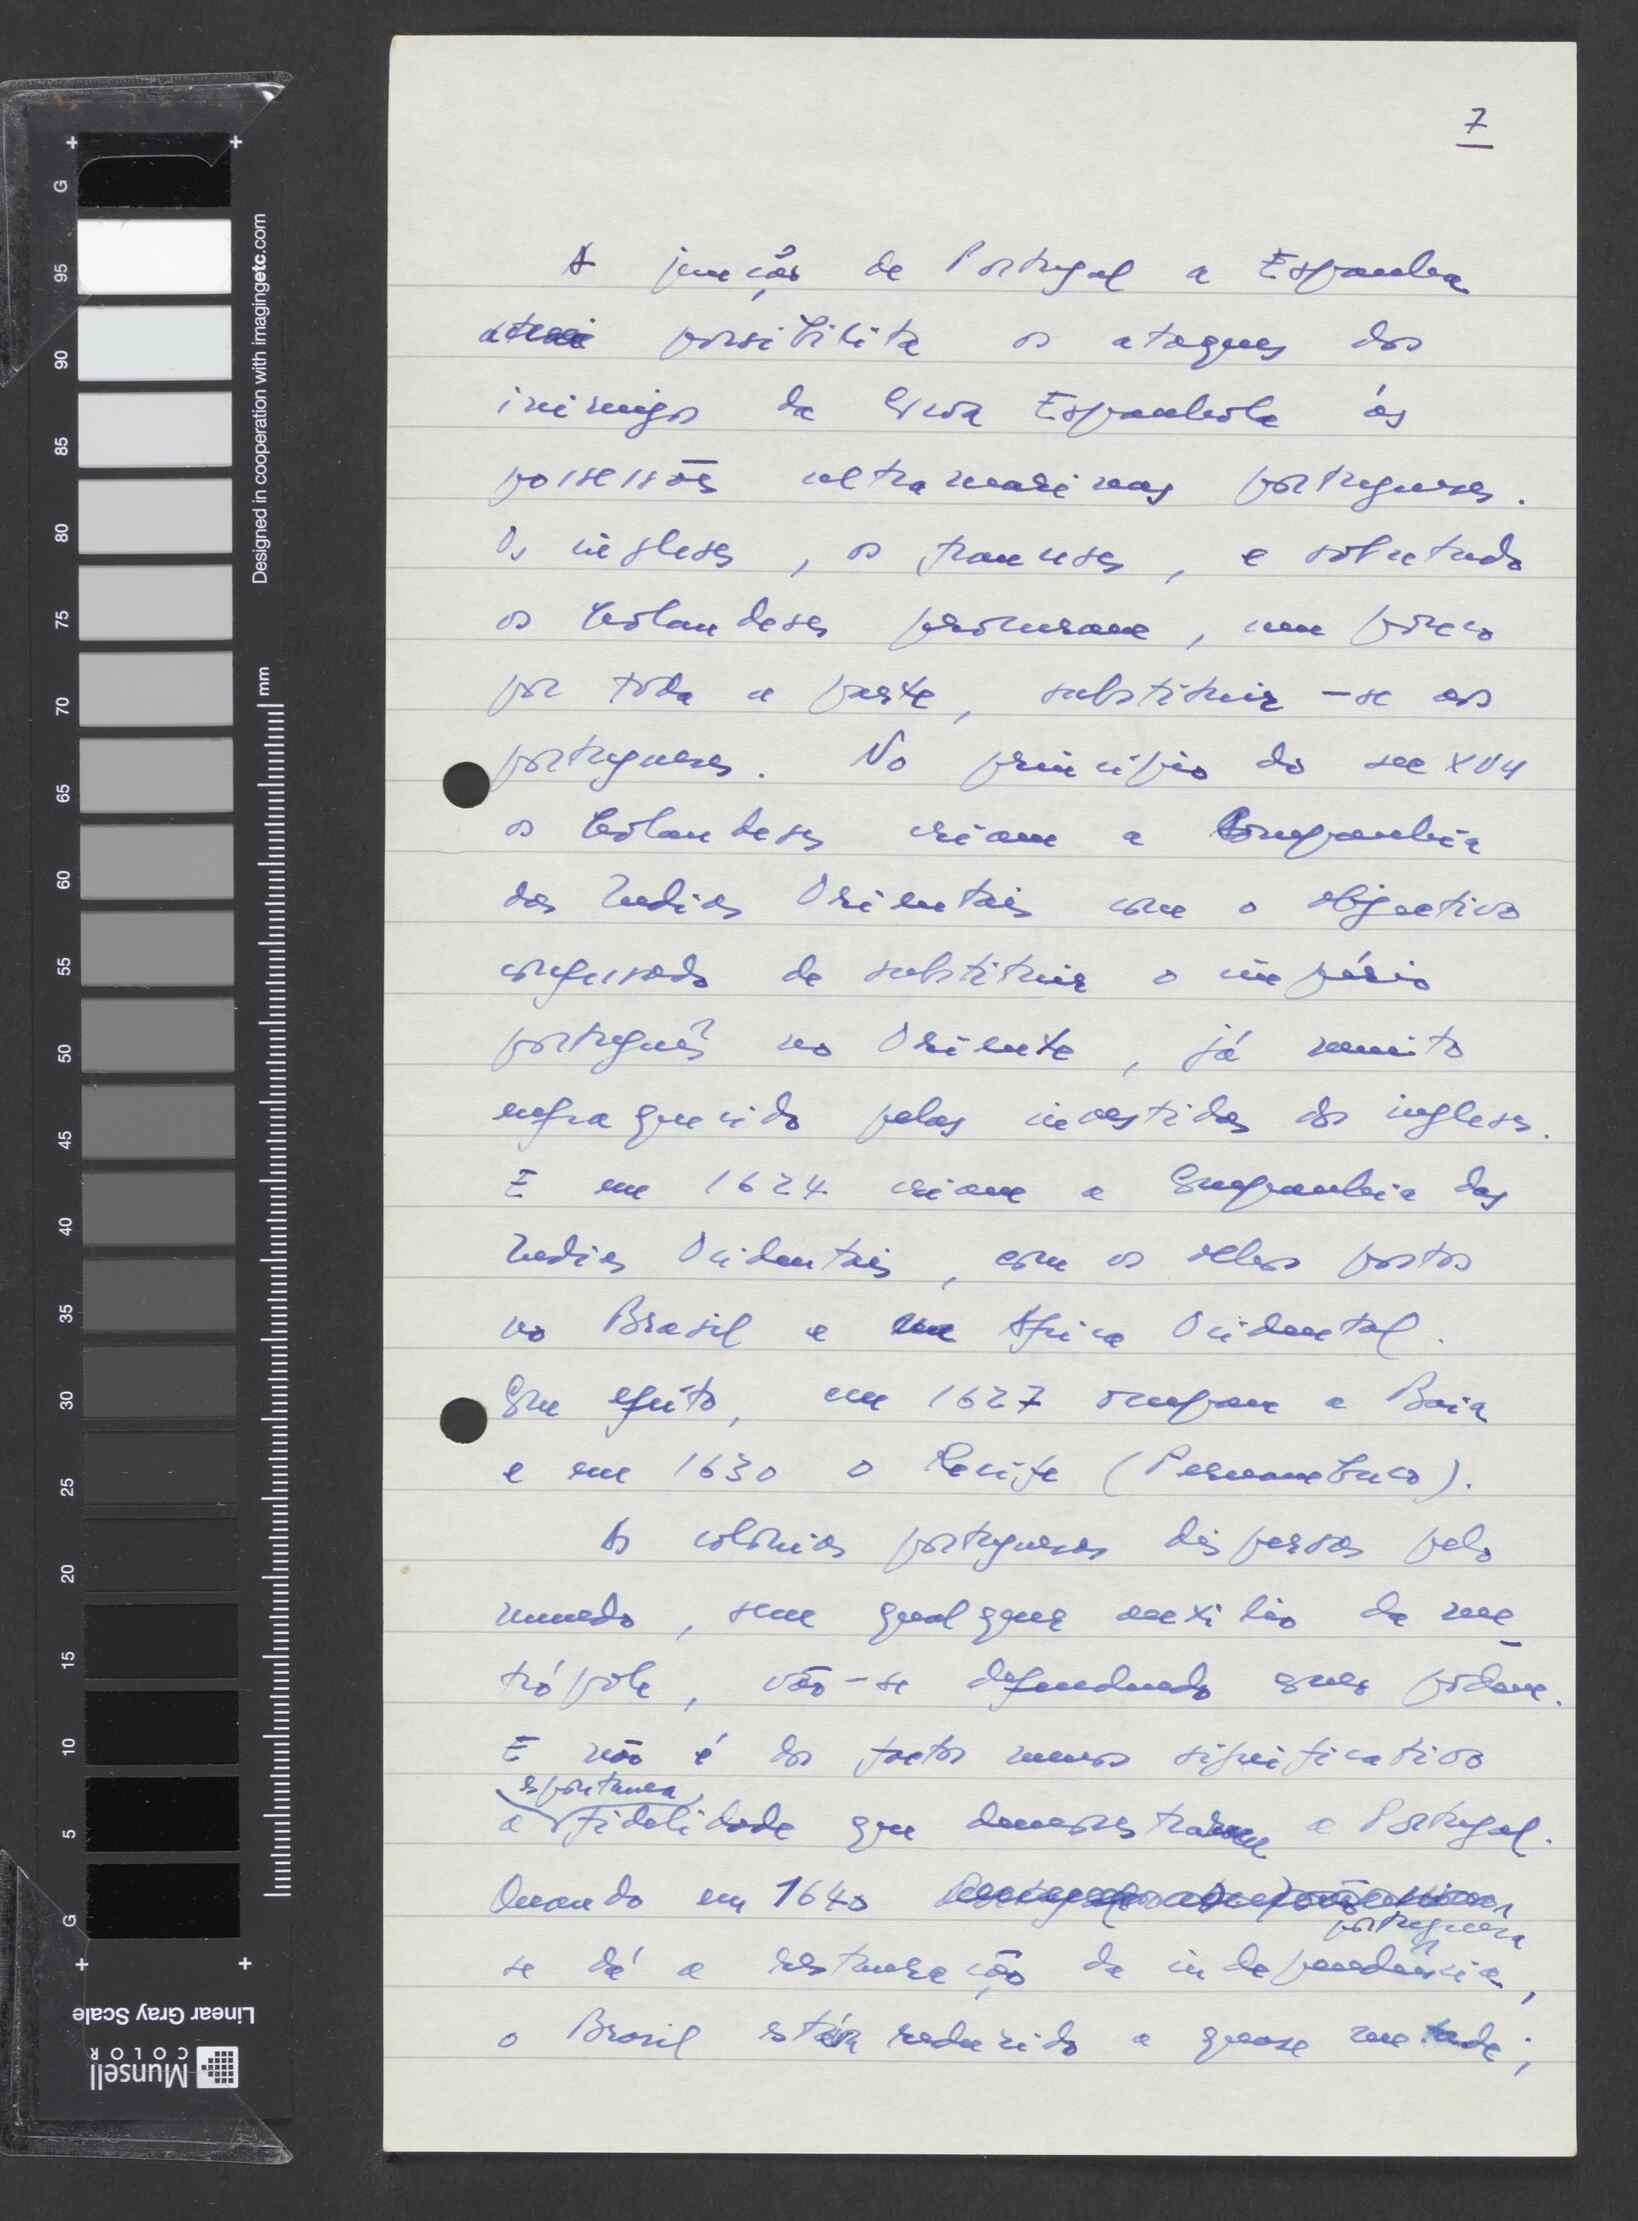 7
A junção de Portugal a Espanha
possibilita os ataques dos
inimigos da Coroa Espanhola às
possessões ultramarinas portuguesas.
Os ingleses, os franceses, e sobretudo
os holandeses procuram, um pouco
por toda a parte, substituir-se aos
portugueses. No princípio do sec XVII
os holandeses criam a Companhia
das Indias Orientais com o objectivo
confessado de substituir o império
português no Oriente, já muito
enfraquecido pelas investidas dos ingleses.
E em 1624 criam a Companhia das
Indias Ocidentais, com os olhos postos
no Brasil e na Africa Ocidental.
Com efeito, em 1627 ocupam a Baia
e em 1630 o Recife (Pernambuco).
As colónias portuguesas dispersas pelo
mundo, sem qualquer auxilio da me-
trópole, vão-se defendendo como podem.
E não é dos factos menos significativo
espontanea
a fidelidade que demonstram a Portugal.
Quando em 1640
portuguesa
se dá a restauração da independência,
o Brasil está reduzido a quase metade;
G
95
90
85
80
75
70
65
60
55
50
45
40
35
30
25
20
15
10
5
G
mm
Designed in cooperation with imagingetc.com
Linear Gray Scale
Munsell
COLOR